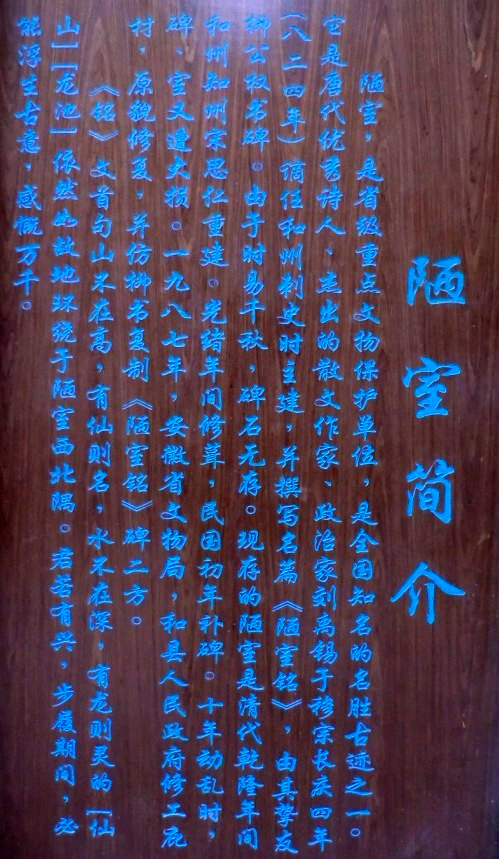 陋室简介
陋室，是省级重点文物保护单位，是全国知名的名胜古迹之一。
室是唐代优秀诗人、杰出的散文作家、政治家刘禹锡于穆宗长庆四年
（八二四年）谪任和州刺史时主建，并撰写名篇《陋室铭》，由其挚友
柳公权书碑。由于时易千秋，碑石无存。现存的陋室是清代乾隆年间
和州知州宋思仁重建。光绪年间修葺，民国初年补碑。十年动乱时，
碑、室又遭大损。一九八七年，安徽省文物局，和县人民政府修工庀
材，原貌修复，并仿柳书复制《陋室铭》碑二方。
《铭》文首句山不在高，有仙则名，水不在深，有龙则灵的「仙
山」「龙池」依然如故地环绕于陋室西北隅。君若有兴，步履期间，必
能浮生古意，感慨万千。